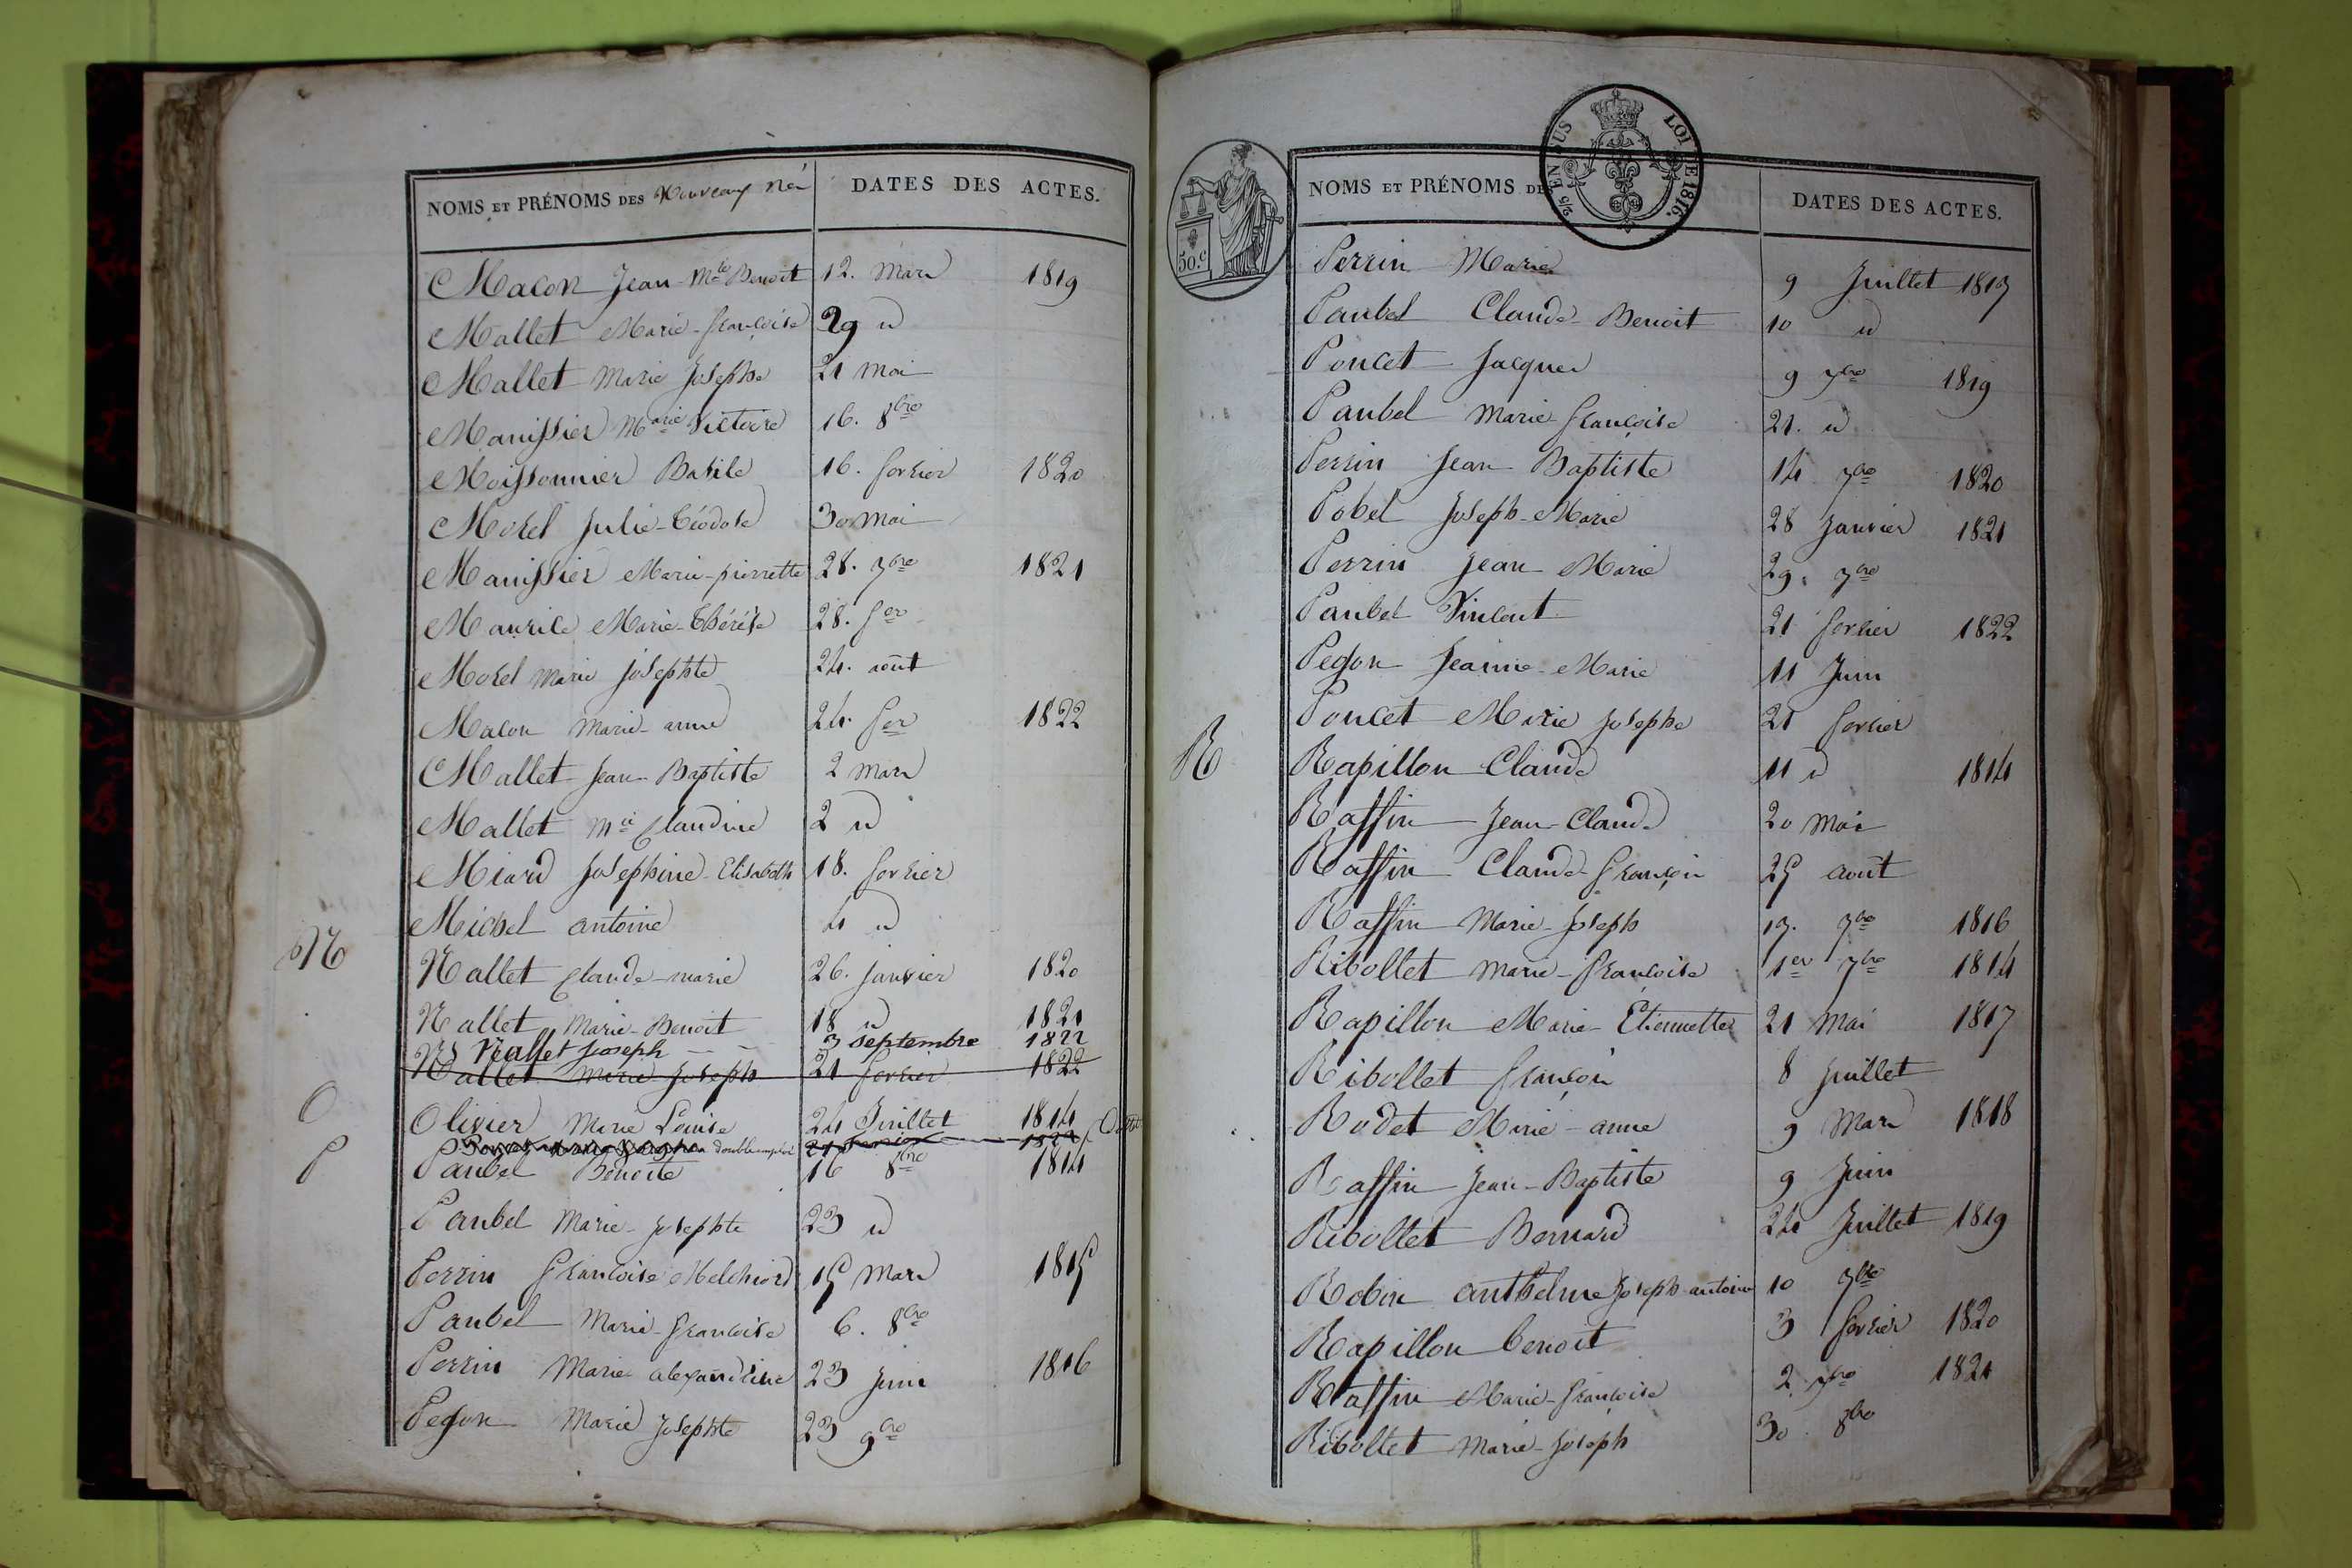 NOMS ET PRÉNOMS DES Nouveaux Nés DATES DES ACTES.
Macon Jean-Mie Benoit 12. Mars 1819
Mallet Marie-françoise 29 id
Mallet Marie Josephe 21 mai
Manissier Marie Victoire 16. 8bre
Moissonnier Basile 16. fevrier 1820
Morel Julie-Téodose 30 mai
Manissier Marie-pierrette 28. 7bre 1821
Maurice Marie-Thérése 28. fer
Morel Marie josephte 24. août
Macon Marie-anne 24. fer 1822
Mallet Jean-Baptiste 2 mars
Mallet Mie Claudine 2 id
Miard Josephine-Elisabeth 18. fevrier
Michel antoine 4 id
N
Nallet Claude-marie 26. janvier 1820
Nallet Marie-Benoit 18 id 1821
Nallet Joseph 3 septembre 1822
Nallet Marie Joseph 21 fevrier 1822
O
Olivier Marie Louise 24 Juillet 1814
Poncet Marie Josephe double emploi 21 fevrier 1822
P
Paubel Benoite 16 8bre 1814
Paubel Marie-Josephte 23 id
Perrin françoise Melchiord 15 Mars 1815
Paubel Marie-françoise 6. 8bre
Perrin Marie alexandrine 23 juin 1816
Pegon Marie Josephte 23 9bre
EN SUS LOI DE 1816.
50.c
NOMS ET PRÉNOMS DES DATES DES ACTES.
Perrin Marie 9 Juillet 1817
Paubel Claude-Benoit 10 id
Poncet Jacques 9 7bre 1819
Paubel Marie-françoise 21. id
Perrin Jean-Baptiste 14 7bre 1820
Pobel Joseph-Marie 28 Janvier 1821
Perrin Jean-Marie 29. 7bre
Paubel Vincent 21 fevrier 1822
Pegon Jeanne-Marie 11 Juin
Poncet Marie Josephe 21 fevrier
R
Rapillon Claude 11 id 1814
Raffin Jean-Claude 20 Mai
Raffin Claude-françois 25 août
Raffin Marie-Joseph 19. 7bre 1816
Ribollet Marie-françoise 1er 7bre 1814
Rapillon Marie-Etiennette 21 Mai 1817
Ribollet françois 8 Juillet
Rodet Marie-anne 9 Mars 1818
Raffin Jean-Baptiste 9 Juin
Ribollet Bernard 24 Juillet 1819
Robin anthelme Joseph-antoine 10 9bre
Rapillon benoit 3 fevrier 1820
Raffin Marie-françoise 2 7bre 1821
Ribollet Marie-Joseph 30. 8bre